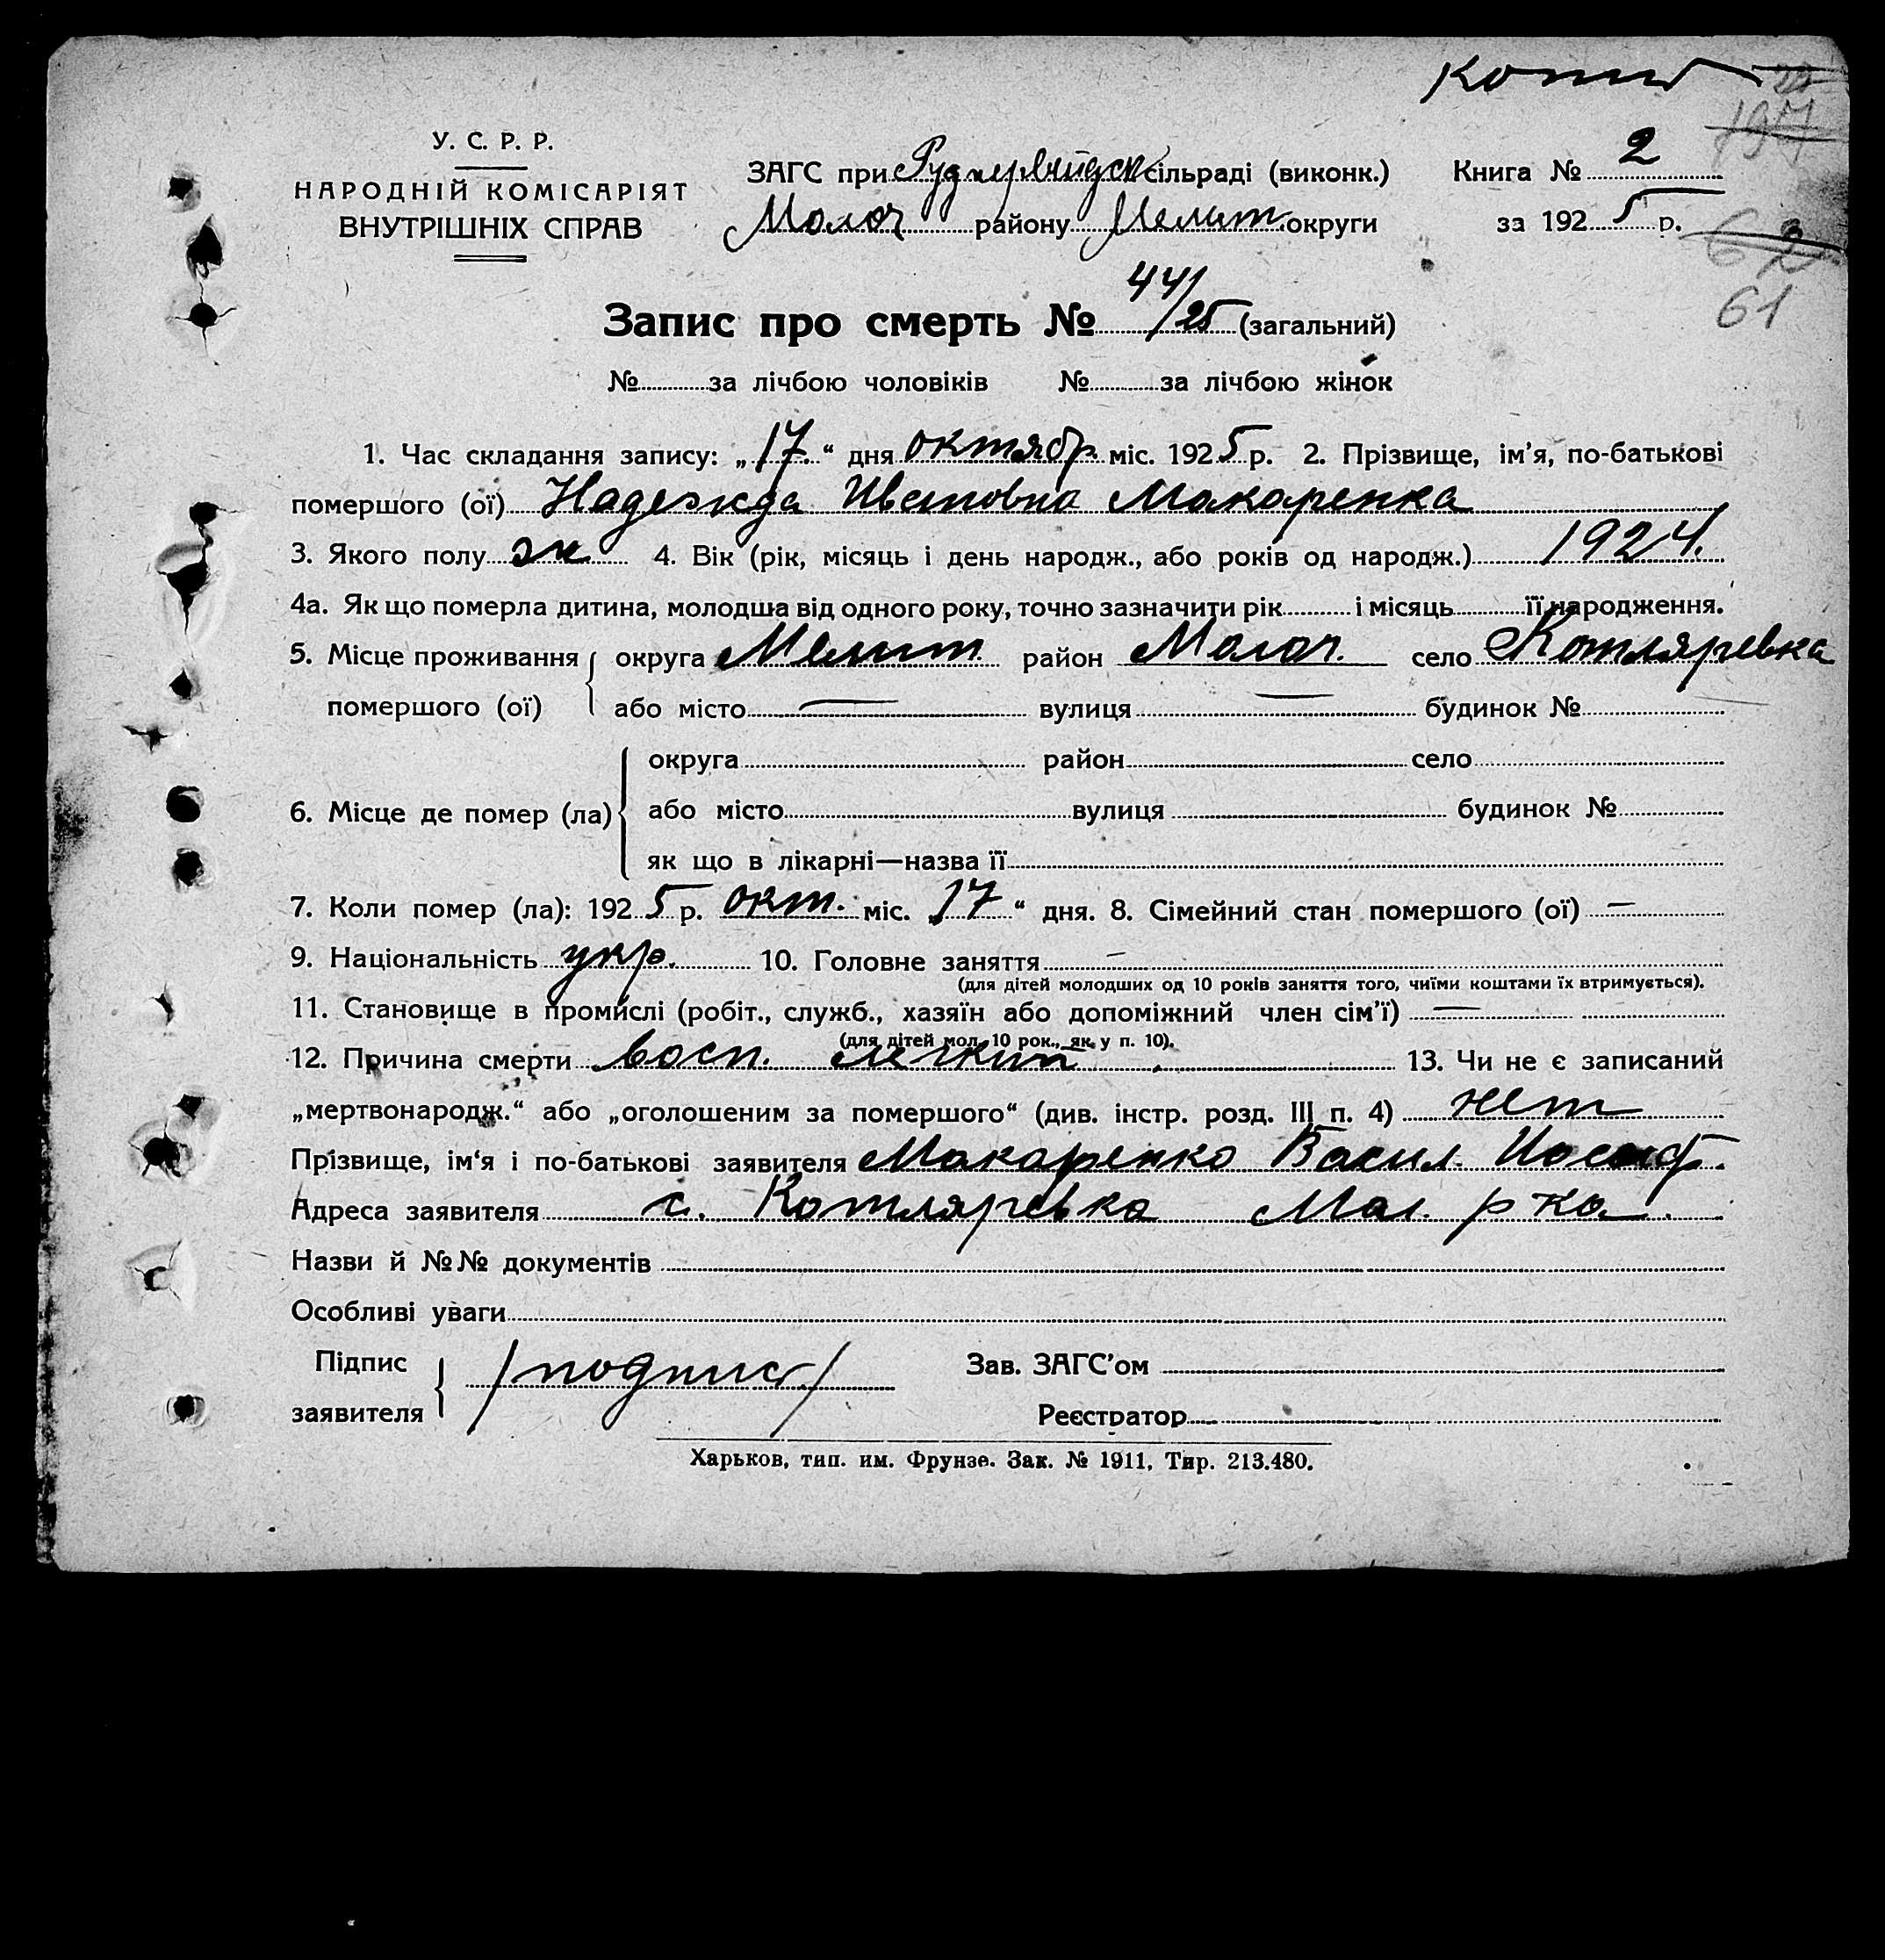 копия
У. С. Р. Р.
НАРОДНІЙ КОМІСАРІЯТ
ВНУТРІШНІХ СПРАВ
ЗАГС при сільраді (виконк.)
Молоч району Мелит. округи
Книга № 2
за 1925 р.
61
Запис про смерть № 44/25 (загальний)
№ за лічбою чоловіків № за лічбою жінок
1. Час складання запису: „17.“ дня октябр. міс. 1925 р. 2. Прізвище, ім’я, по-батькові
помершого (ої) Надежда Ивановна Макаренка
3. Якого полу ж. 4. Вік (рік, місяць і день народж., або років од народж.) 1924.
4а. Як що померла дитина, молодша від одного року, точно зазначити рік і місяць її народження.
5. Місце проживання округа Мелит. район Молоч. село Котляревка
помершого (ої) або місто — вулиця — будинок №
округа район село
6. Місце де помер (ла) або місто вулиця будинок №
як що в лікарні—назва її
7. Коли помер (ла): 1925 р. окт. міс. 17“ дня. 8. Сімейний стан помершого (ої) —
9. Національність укр. 10. Головне заняття —
(для дітей молодших од 10 років заняття того, чиїми коштами їх втримується).
11. Становище в промислі (робіт., служб., хазяїн або допоміжний член сім’ї) —
(для дітей мол. 10 рок., як у п. 10).
12. Причина смерти восп. легких 13. Чи не є записаний
„мертвонародж.“ або „оголошеним за помершого“ (див. інстр. розд. III п. 4) нет
Прізвище, ім‘я і по-батькові заявителя Макаренко Васил. Иосиф.
Адреса заявителя с. Котляревка Мол. р-ка.
Назви й №№ документів
Особливі уваги
Підпис
заявителя /подпись/
Зав. ЗАГС’ом
Реєстратор
Харьков, тип. им. Фрунзе. Зак. № 1911, Тир. 213.480.